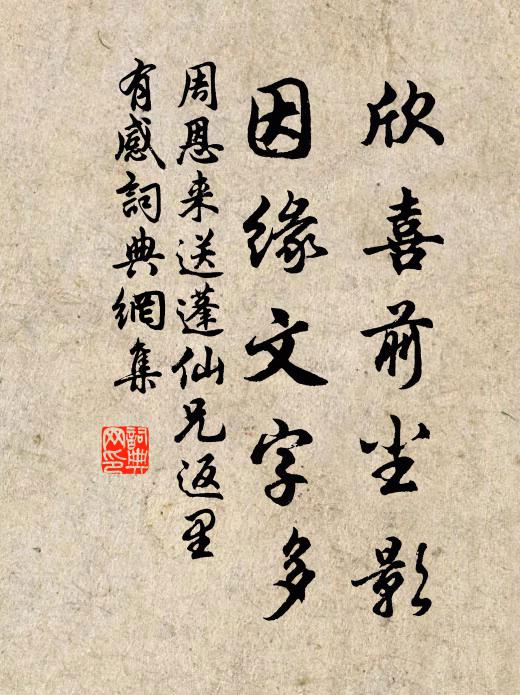 欣喜前尘影
因缘文字多
周恩来送蓬仙兄返里
有感詞典網集
詞典网印